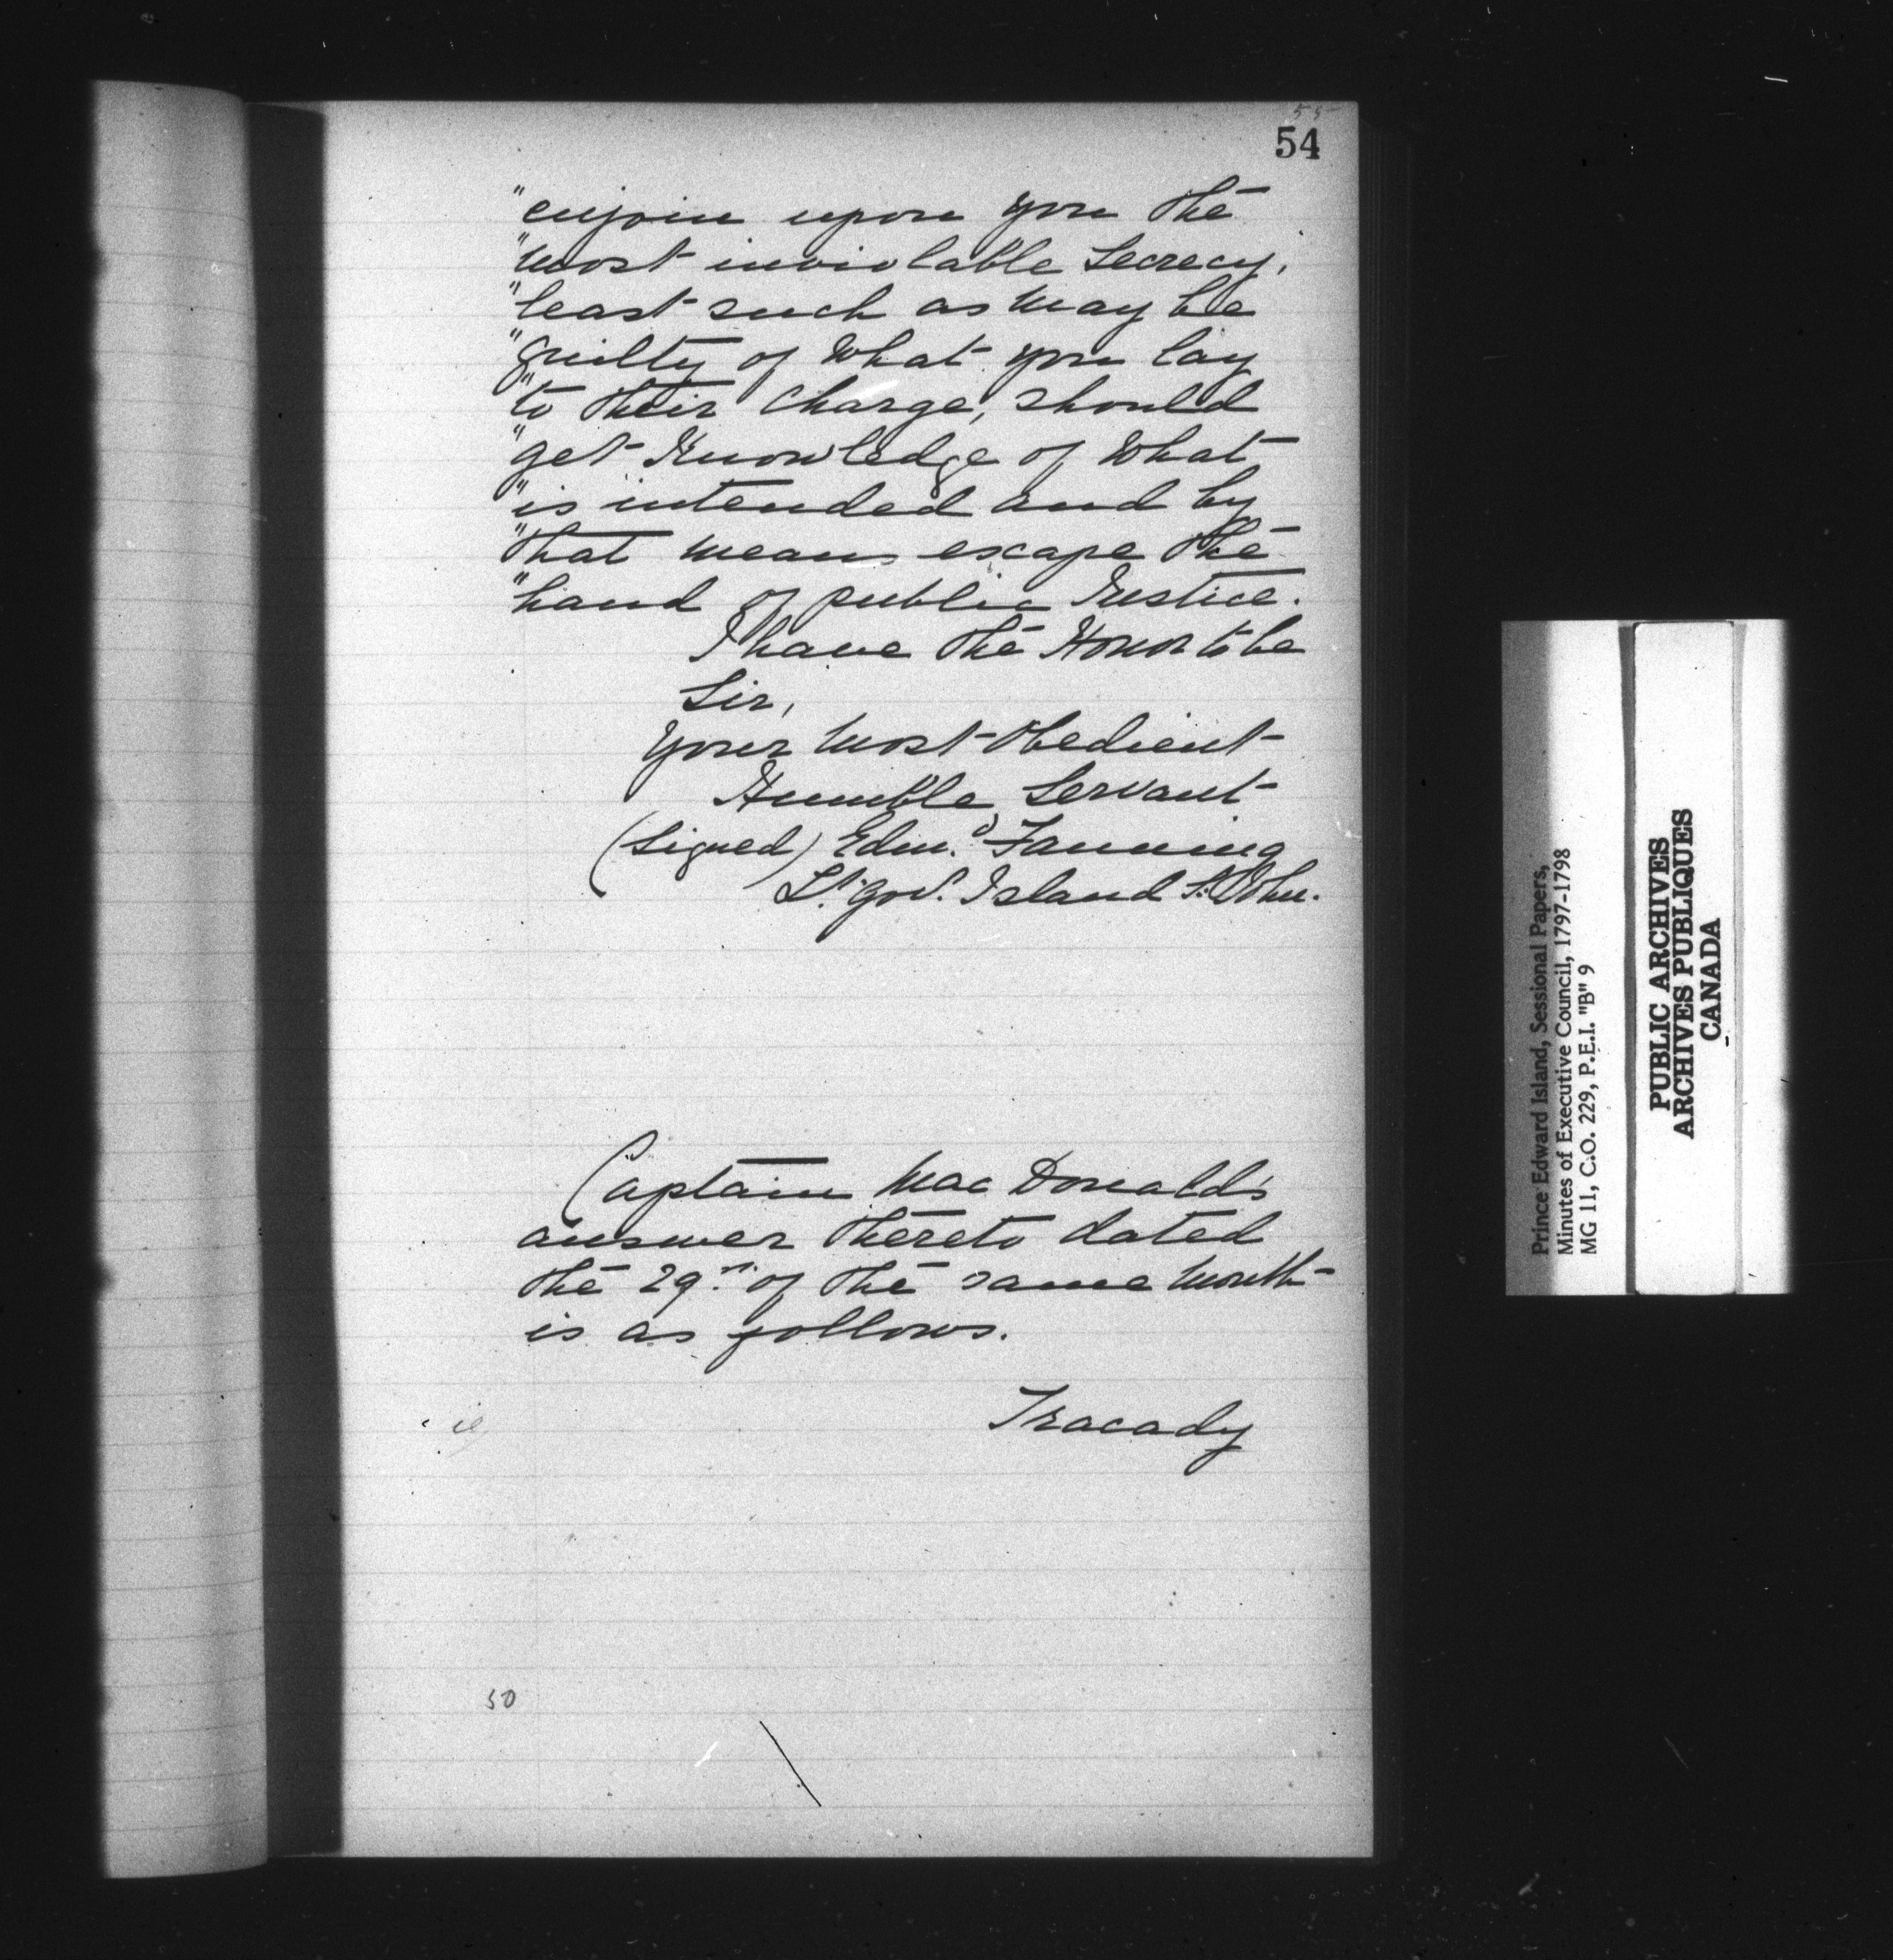 55
54
"enjoin upon you the
"most inviolable Secrecy,
"least such as may be
"guilty of what you lay
"to their charge, should
"get Knowledge of what
"is intended and by
"that means escape the
"hand of public Justice.
I have the Honor to be
Sir,
Your most Obedient
Humble Servant
(Signed) Edmd. Fanning
Lt. Govr. Island St. John.
Captain Mac Donald's
answer thereto dated
the 29th. of the same month
is as follows.
Tracady
50
Prince Edward Island, Sessional Papers,
Minutes of Executive Council, 1797-1798
MG 11, C.O. 229, P.E.I. "B" 9
PUBLIC ARCHIVES
ARCHIVES PUBLIQUES
CANADA